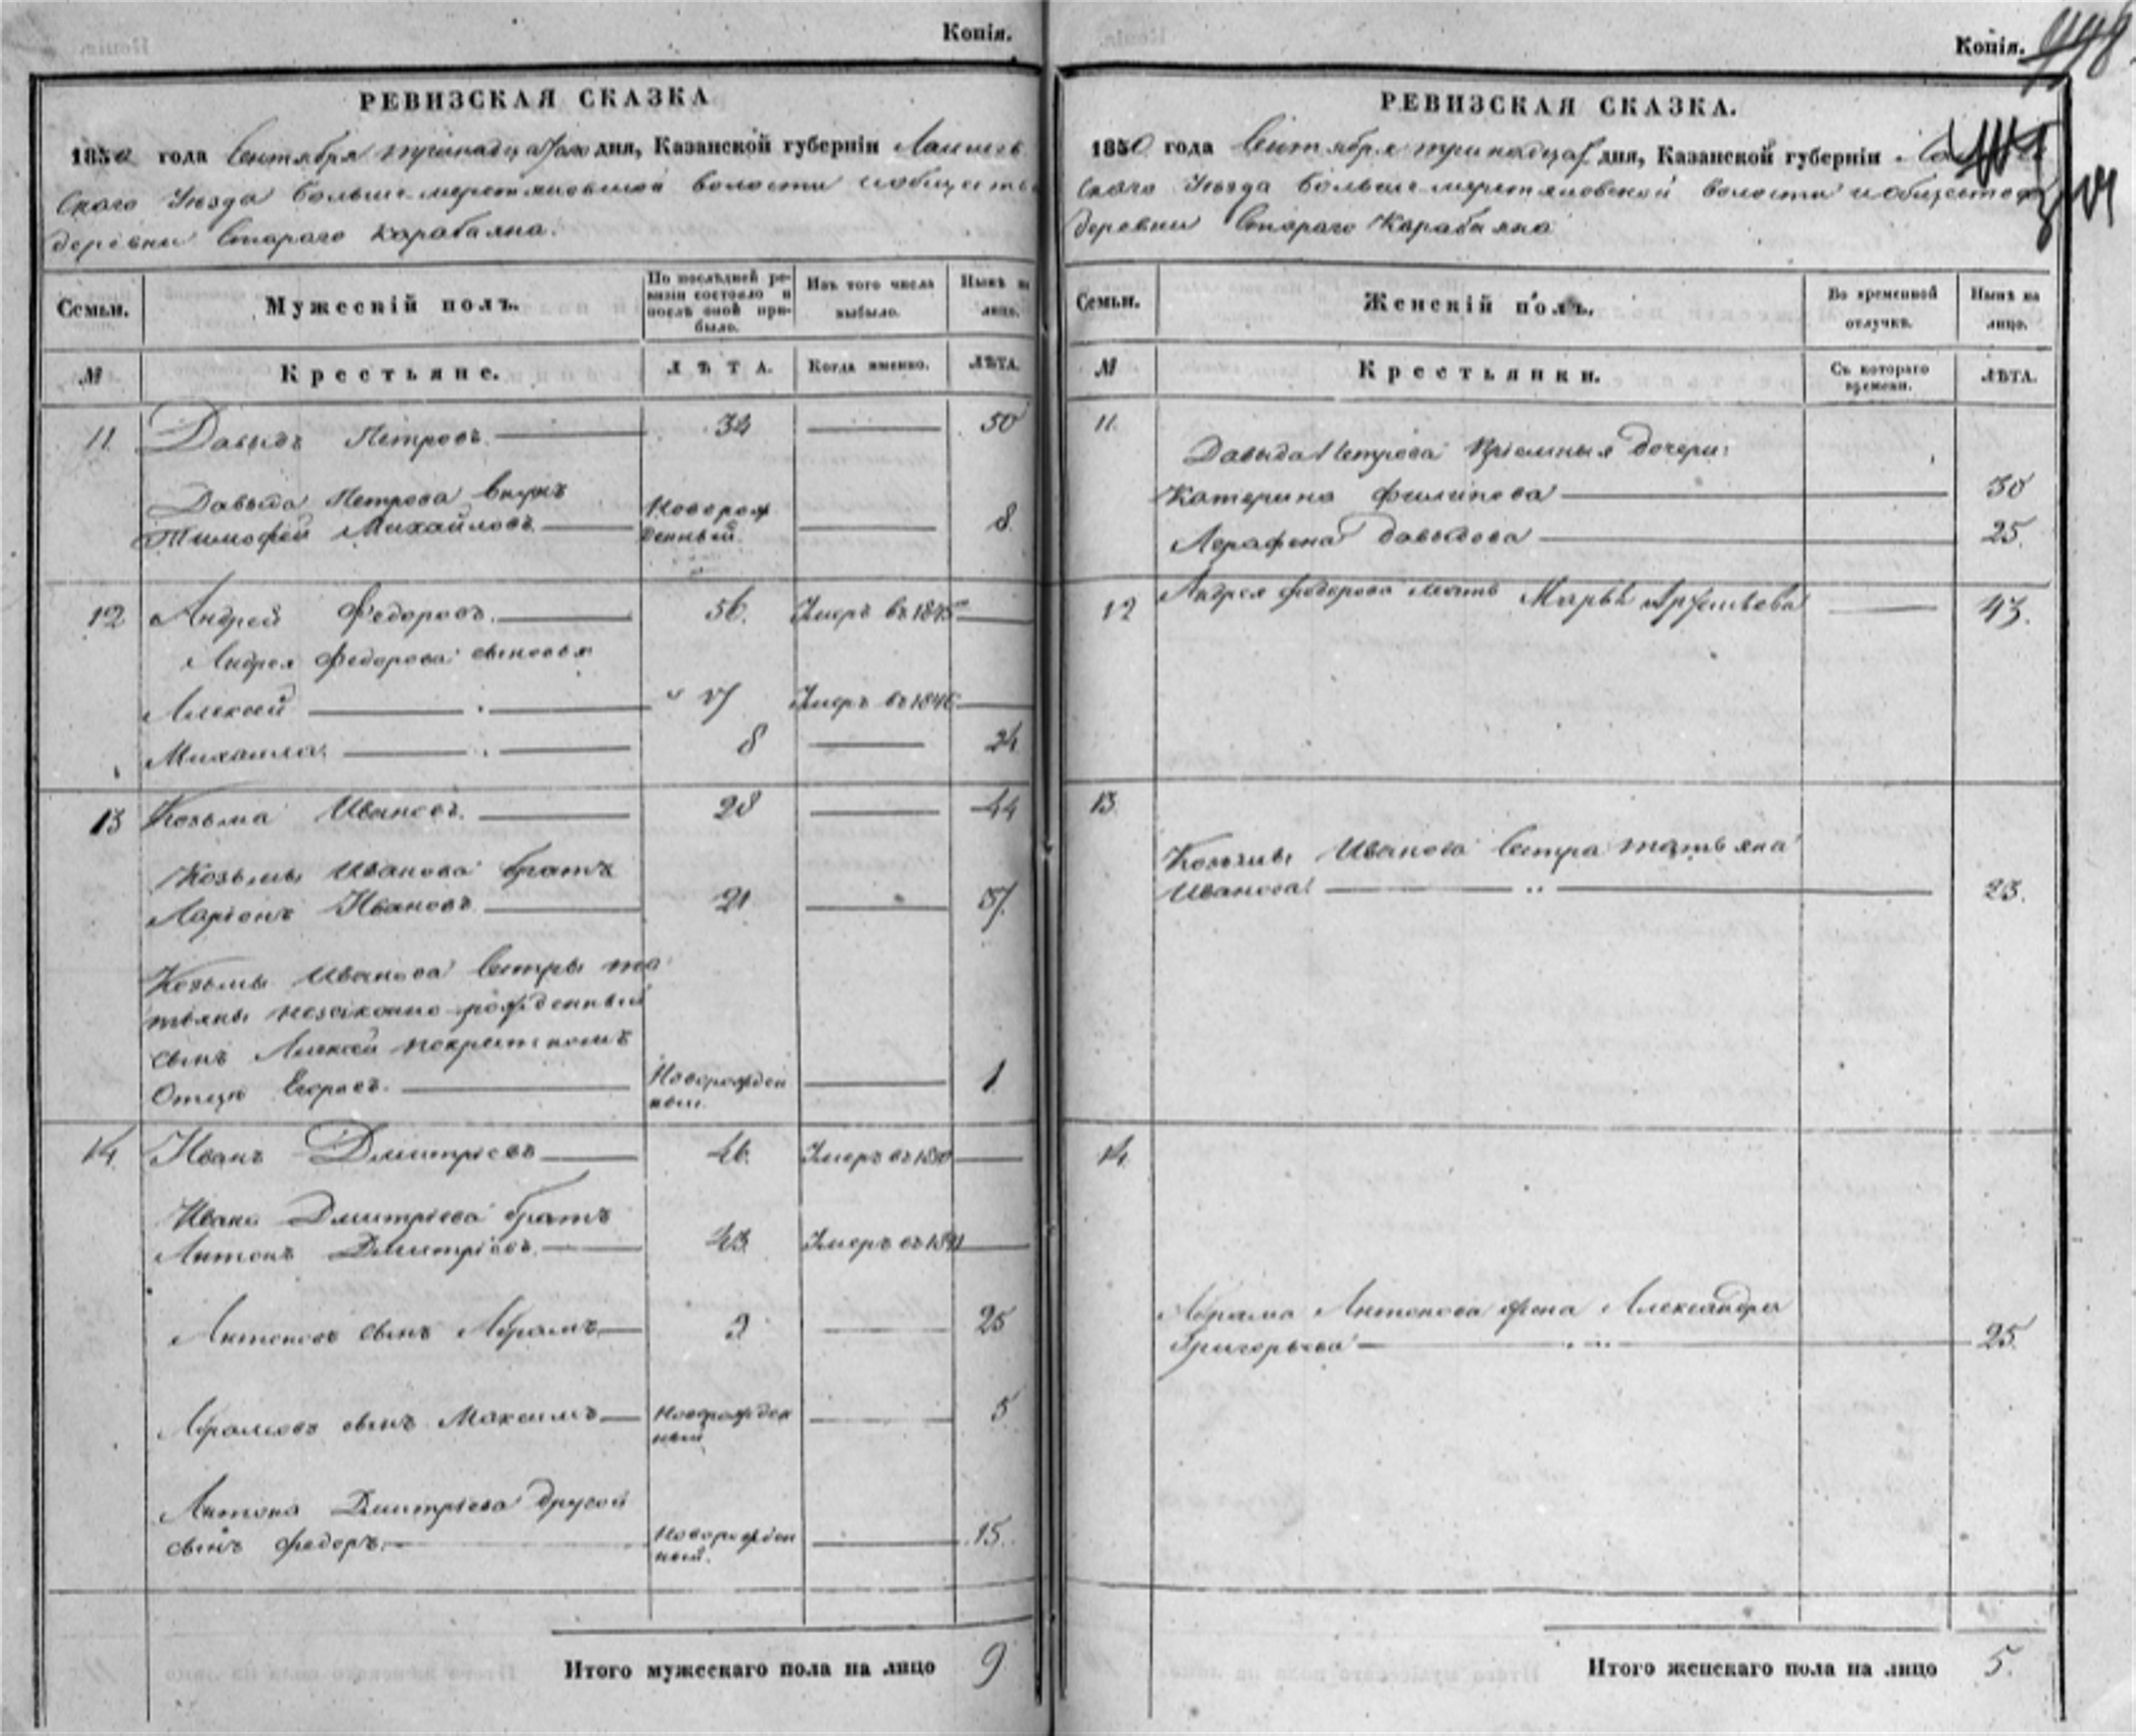 Копія.
РЕВИЗСКАЯ СКАЗКА
1850 года Сентября тринадцатаго дня, Казанской губерніи Лаишев
скаго Уезда Больше-меретяковской волости и общества
деревни Стараго Карабаяна.
Семьи. Мужескій полъ. По послѣдней ре- Изъ того числа Нынѣ на
визіи состояло и выбыло. лицо.
послѣ оной при-
было.
№ Крестьяне. ЛѢТА. Когда именно. ЛѢТА.
11 Давыдъ Петровъ 34 50
Давыда Петрова внукъ Новорож
Тимофей Михайловъ денный. 8.
12 Андрей Федоровъ. 56. Умеръ въ 1845
Андрея Федорова сыновья
Алексей 17 Умеръ въ 1846
Михаила 8 24
13 Козьма Ивановъ. 28 44
Козьмы Иванова братъ
Ларіонъ Ивановъ 21 37
Козьмы Иванова Сестры та
тьяны незаконно рожденный
сынъ Алексей по крестномъ
Отцу Егоровъ. Новорожден 1
ный.
14 Иванъ Дмитріевъ 46. Умеръ въ 1850
Ивана Дмитріева братъ
Антонъ Дмитріевъ. 43 Умеръ въ 1841
Антоновъ сынъ Абрамъ 9 25
Абрамовъ сынъ Максимъ Новорожден 5
ный
Антона Дмитріева другой
сынъ Федоръ. Новорожден 15.
ный.
Итого мужескаго пола на лицо 9
Копія. 998.
РЕВИЗСКАЯ СКАЗКА.
1850 года Сентября тринадцат дня, Казанской губерніи
скаго Уезда Больше-меретяковской волости и общества
деревни Стараго Карабаяна
Семьи. Женскій полъ. Во временной Нынѣ на
отлучкѣ. лицо.
№ Крестьянки. Съ котораго ЛѢТА.
времени.
11. Давыда Петрова Приемныя дочери:
Катерина Филипова 30
Давыдова 25.
12 Андрея Федорова мать Марья 43.
13. Козьмы Иванова Сестра татьяна
Иванова 23.
14. Абрама Антонова жена Александра
Григорьева 25.
Итого женскаго пола на лицо 5.